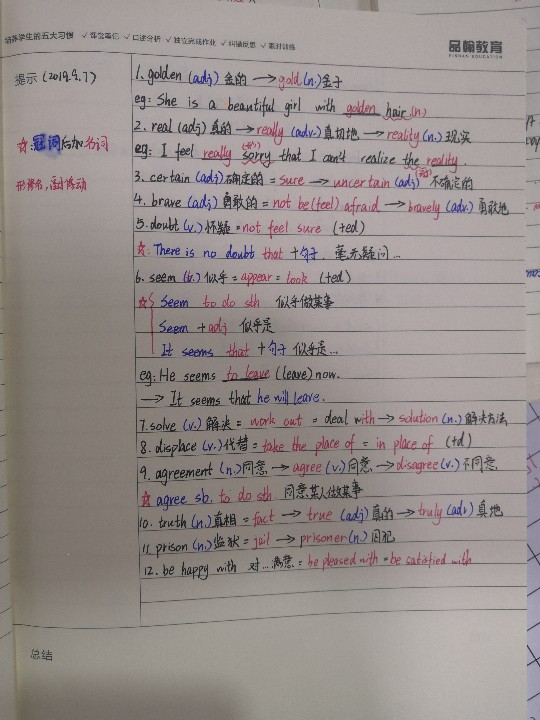 培养学生的五大习惯 √课堂笔记 √口述分析 √独立完成作业 √纠错反思 √限时训练
品翰教育
PINHAN EDUCATION
提示 (2019.9.7)
☆:冠词后加名词
形修名,副修动
1. golden (adj) 金的 → gold (n.) 金子
eg: She is a beautiful girl with golden hair. (n)
2. real (adj) 真的 → really (adv.) 真切地 → reality (n.) 现实
eg: I feel really sorry that I can't realize the reality.
3. certain (adj) 确定的 = sure → uncertain (adj) 不确定的
4. brave (adj) 勇敢的 = not be (feel) afraid → bravely (adv.) 勇敢地
5. doubt (v.) 怀疑 = not feel sure (ted)
☆. There is no doubt that + 句子. 毫无疑问...
6. seem (v.) 似乎 = appear = look (ted)
☆ Seem to do sth 似乎做某事
Seem + adj 似乎是
It seems that + 句子 似乎是...
eg: He seems to leave (leave) now.
→ It seems that he will leave.
7. solve (v.) 解决 = work out = deal with → solution (n.) 解决方法
8. displace (v.) 代替 = take the place of = in place of (td)
9. agreement (n.) 同意 → agree (v.) 同意 → disagree (v.) 不同意
☆ agree sb. to do sth 同意某人做某事
10. truth (n.) 真相 = fact → true (adj) 真的 → truly (adv) 真地
11. prison (n.) 监狱 = jail → prisoner (n.) 囚犯
12. be happy with 对...满意 = be pleased with = be satisfied with
总结